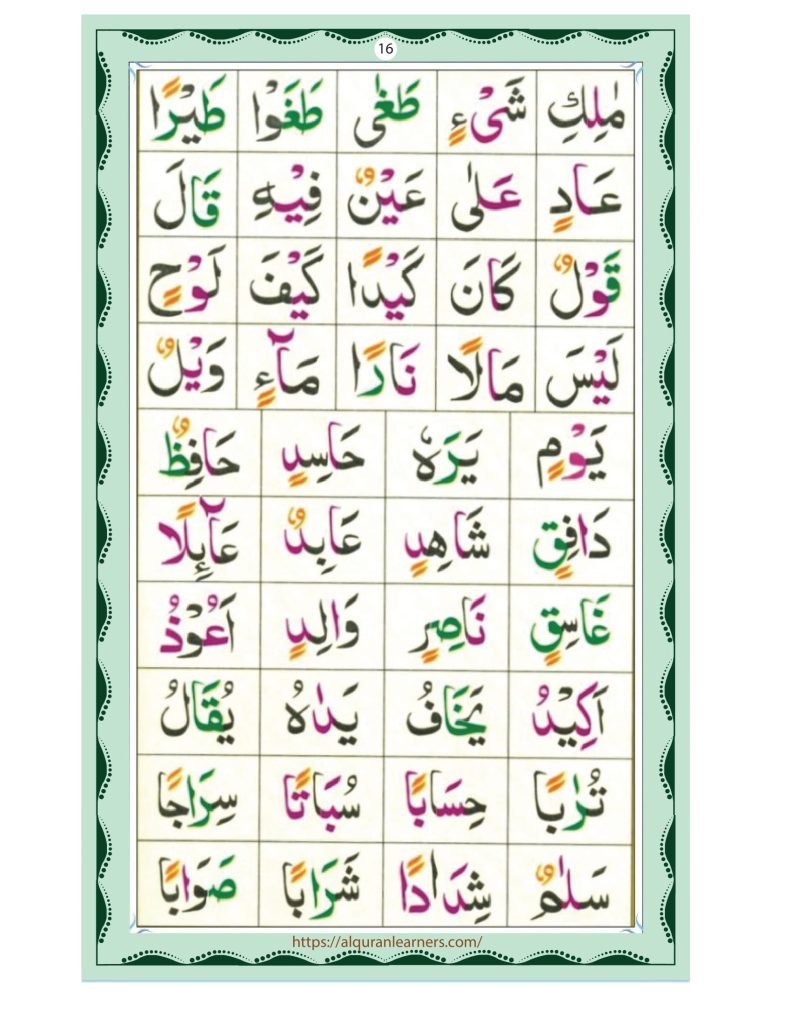 16
مٰلِكِ شَیْءٍ طَغٰى طَغَوْا طَيْرًا
عَادٍ عَلٰى عَيْنٌ فِيْهِ قَالَ
قَوْلٌ كَانَ كَيْدًا كَيْفَ لَوْحٍ
لَيْسَ مَالًا نَارًا مَآءٍ وَيْلٌ
يَوْمٍ يَرَهٗ حَاسِدٍ حَافِظٌ
دَافِقٍ شَاهِدٍ عَابِدٌ عَآئِلًا
غَاسِقٍ نَاصِرٍ وَالِدٍ اَعُوْذُ
اَكِيْدُ يَخَافُ يَدٰهُ يُقَالُ
تُرٰبًا حِسَابًا سُبَاتًا سِرَاجًا
سَلٰمٌ شِدَادًا شَرَابًا صَوَابًا
https://alquranlearners.com/